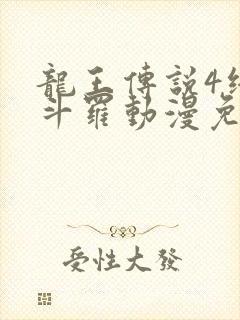 龍王傳說4
斗羅動漫免
受性大發